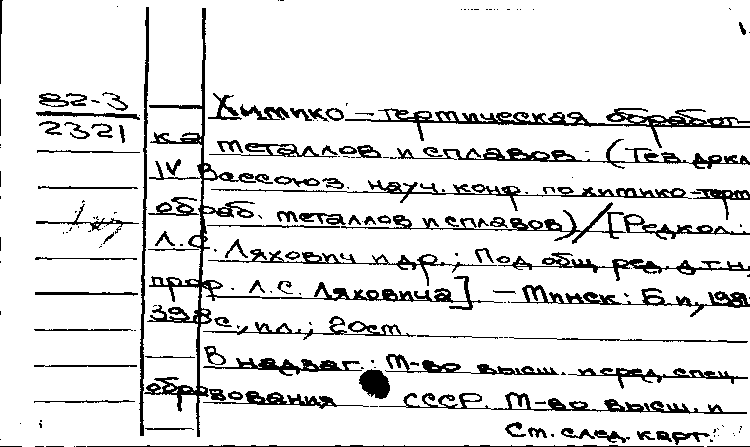 82-3
2321
Химико-термическая обработ-
ка металлов и сплавов: (Тез. докл.
IV Всесоюз. науч. конф. по химико-терм.
обраб. металлов и сплавов) / [Редкол.:
Л.С. Ляхович и др.; Под общ. ред. д.т.н.,
проф. Л.С. Ляховича]. — Минск: Б. и., 198
398 с., ил.; 20 см.
В надзаг.: М-во высш. и сред. спец.
образования СССР. М-во высш. и
См. след. карт.